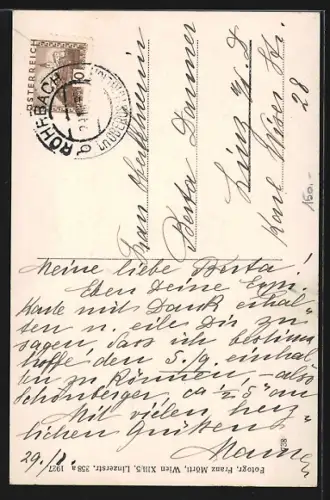 ÖSTERREICH
ROHRBACH
Frau
Berta Danner
Linz a/D
Karl Wiser Str.
28
150.-
Meine liebe Berta!
Eben Deine
Karte mit Dank erhal-
ten u. eile Dir zu
sagen, dass ich bestimmt
hoffe, den 5./9. einhal-
ten zu können, - also
Schönberger, ca ½ 5h
Mit vielen, herz-
lichen Grüßen
29./8.
Fotogr. Franz Mörtl, Wien XIII/5, Linzerstr. 258a 1927